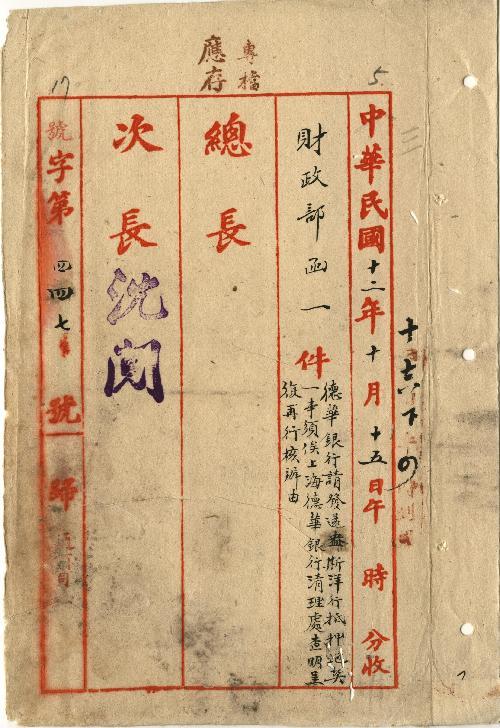 專檔
應存
5
17
三
十六下
中華民國十二年十月十五日午 時 分收
財政部函一件
德華銀行請發還 斯洋行抵押
一事須俟上海德華銀行清理處查明呈
復再行核辦由
總長
次長
沈
閱
號字第 四四七 號 歸